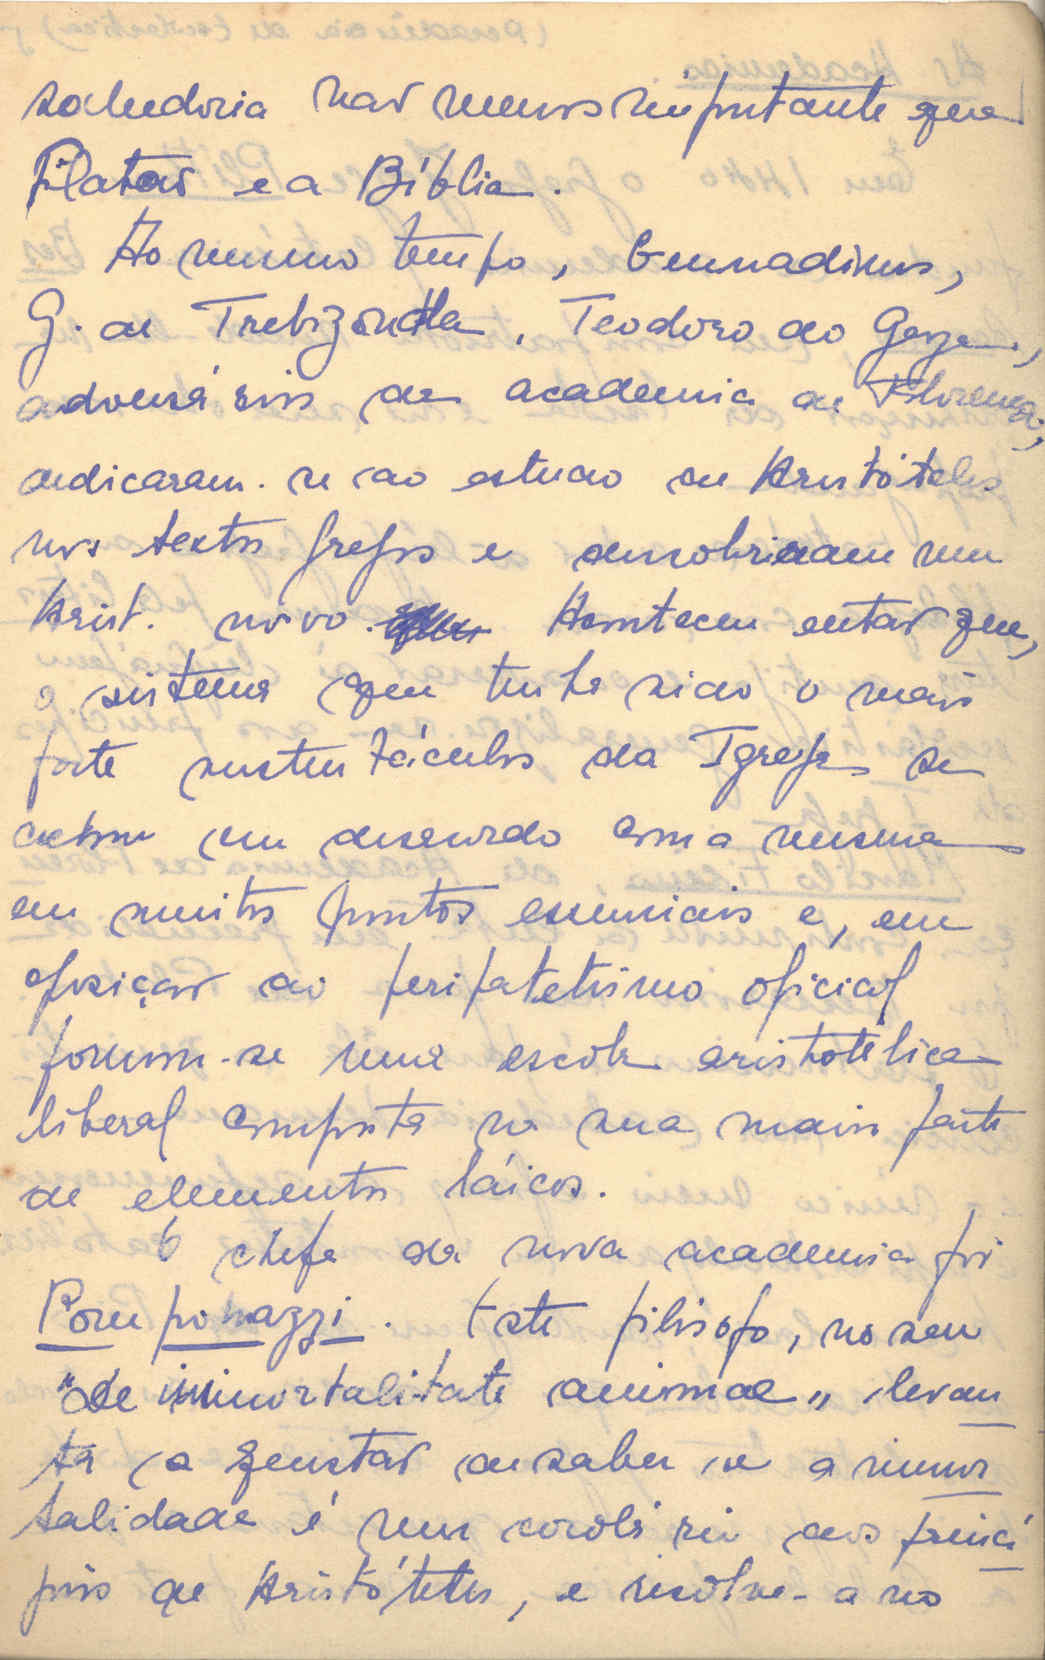 sabedoria não menos importante que
Platão e a Bíblia.
Ao mesmo tempo, Gennadinus,
G. de Trebizonda, Teodoro de Gaza,
adversários da academia de Florença,
dedicaram-se ao estudo de Aristóteles
nos textos gregos e descobriram um
Arist. novo. Aconteceu então que,
o sistema que tinha sido o mais
forte sustentáculos da Igreja se
achou em desacordo com a mesma
em muitos pontos essenciais e, em
oposição ao peripatetismo oficial
formou-se uma escola aristotélica
liberal composta na sua maior parte
de elementos láicos.
O chefe da nova academia foi
Pomponazzi. Este filósofo, no seu
"de immortalitate animae" levan
ta a questão de saber se a immor
talidade é um corolário dos princí
pios de Aristóteles, e resolve-a no